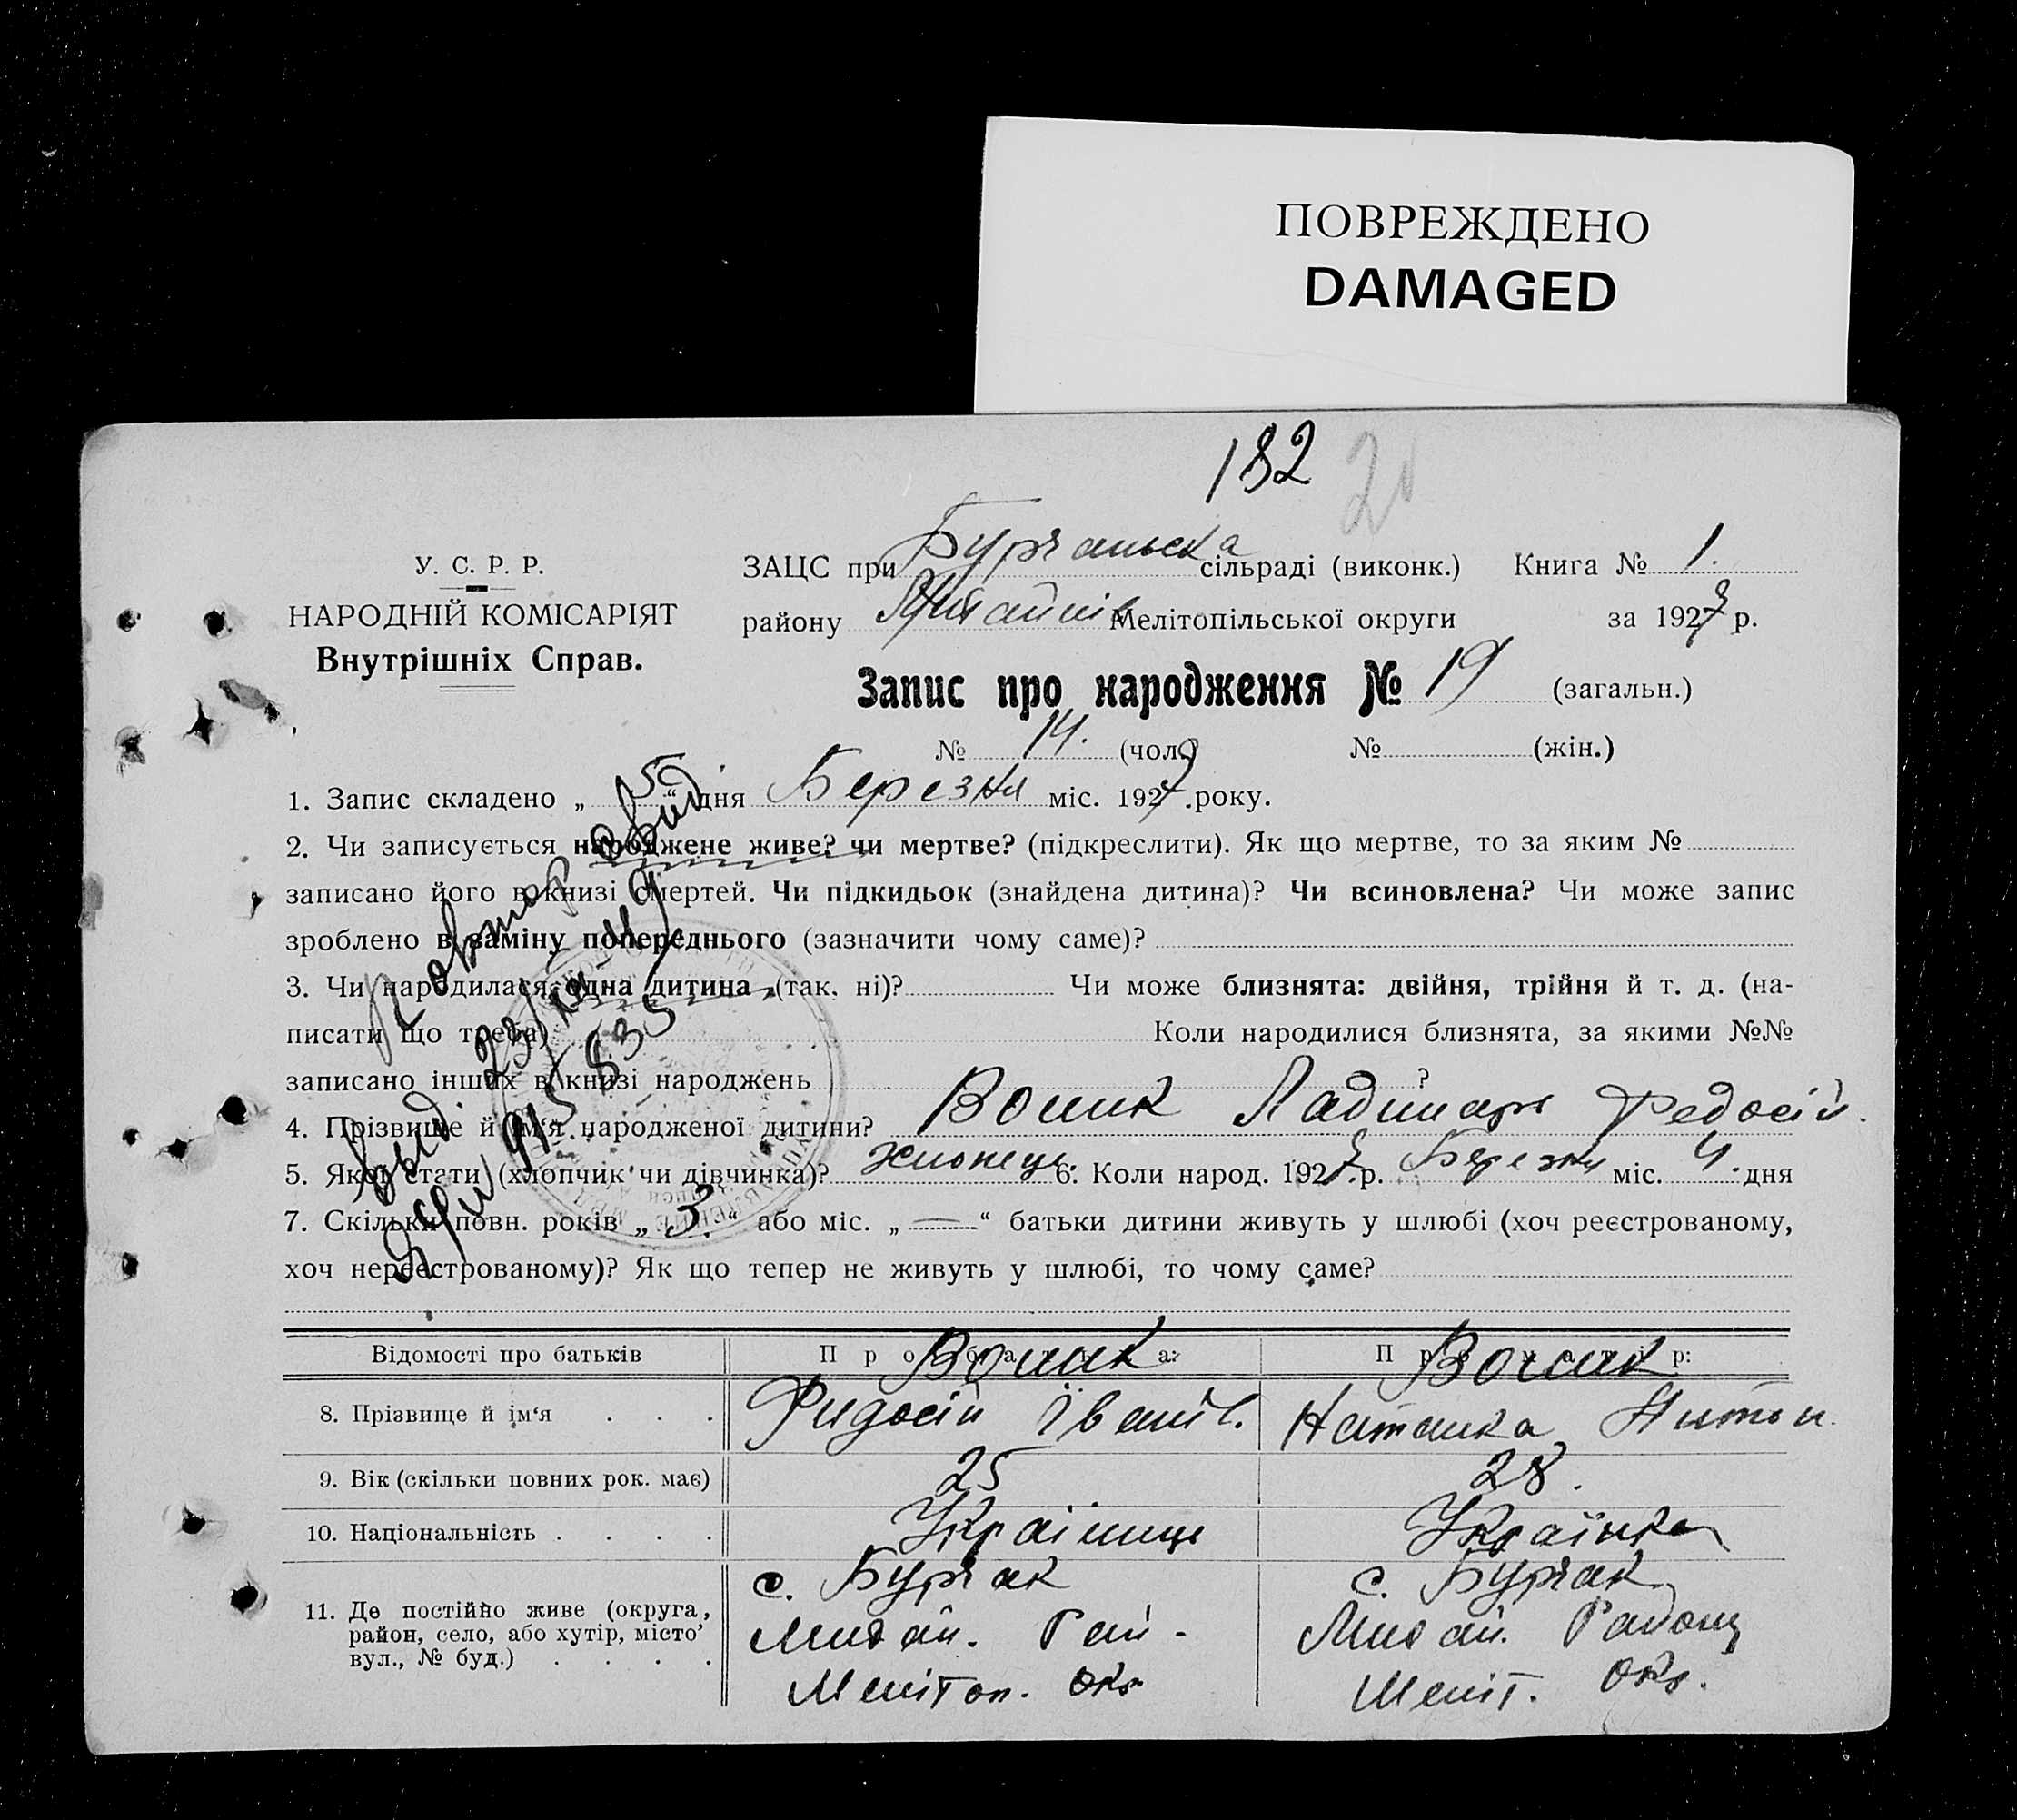 ПОВРЕЖДЕНО
DAMAGED
182
У. С. Р. Р.
НАРОДНІЙ КОМІСАРІЯТ
Внутрішніх Справ.
ЗАЦС при Бурчальска сільраді (виконк.) Книга № 1.
району Мелітопільської округи за 192 р.
Запис про народження № 19 (загальн.)
№ 14. (чол.) № (жін.)
1. Запис складено „ 5 “ дня Березня міс. 192 .року.
2. Чи записується народжене живе? чи мертве? (підкреслити). Як що мертве, то за яким №
записано його в книзі смертей. Чи підкидьок (знайдена дитина)? Чи всиновлена? Чи може запис
зроблено в заміну попереднього (зазначити чому саме)?
3. Чи народилася одна дитина (так, ні)? Чи може близнята: двійня, трійня й т. д. (на-
писати що треба) Коли народилися близнята, за якими №№
записано інших в книзі народжень ?
4. Прізвище й ім‘я народженої дитини? Федосій.
5. Якої стати (хлопчик чи дівчинка)? Хлопець. 6. Коли народ. 192 р. Березня міс. 4. дня
7. Скільки повн. років „ 3 “ або міс. „ — “ батьки дитини живуть у шлюбі (хоч реєстрованому,
хоч нереєстрованому)? Як що тепер не живуть у шлюбі, то чому саме?
Повтор. выд.
Выд.
Відомості про батьків Про батька: Про матір:
8. Прізвище й ім‘я . . . Федосій Іванів. Наталка Антон.
9. Вік (скільки повних рок. має) 25 28.
10. Національність . . . . Українець Українка
11. Де постійно живе (округа, с. Бурчак с. Бурчак
район, село, або хутір, місто Михай. Рай. Михай. Району
вул., № буд.) . . . . Мелітоп. Окр. Меліт. Окр.